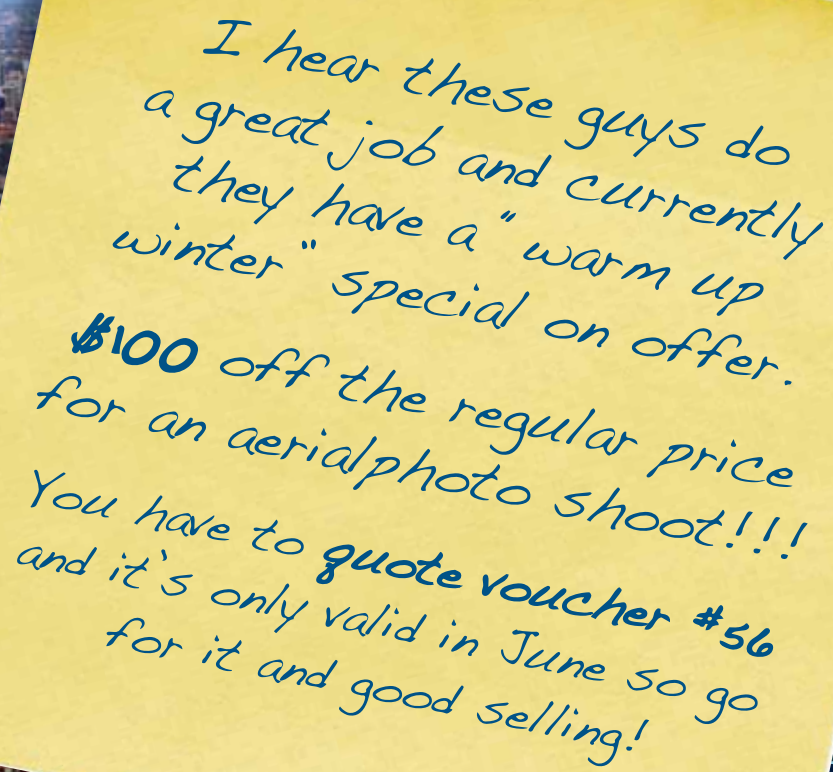 I hear these guys do
a great job and currently
they have a "warm up
winter" special on offer.
$100 off the regular price
for an aerialphoto shoot!!!
You have to quote voucher #56
and it's only valid in June so go
for it and good selling!